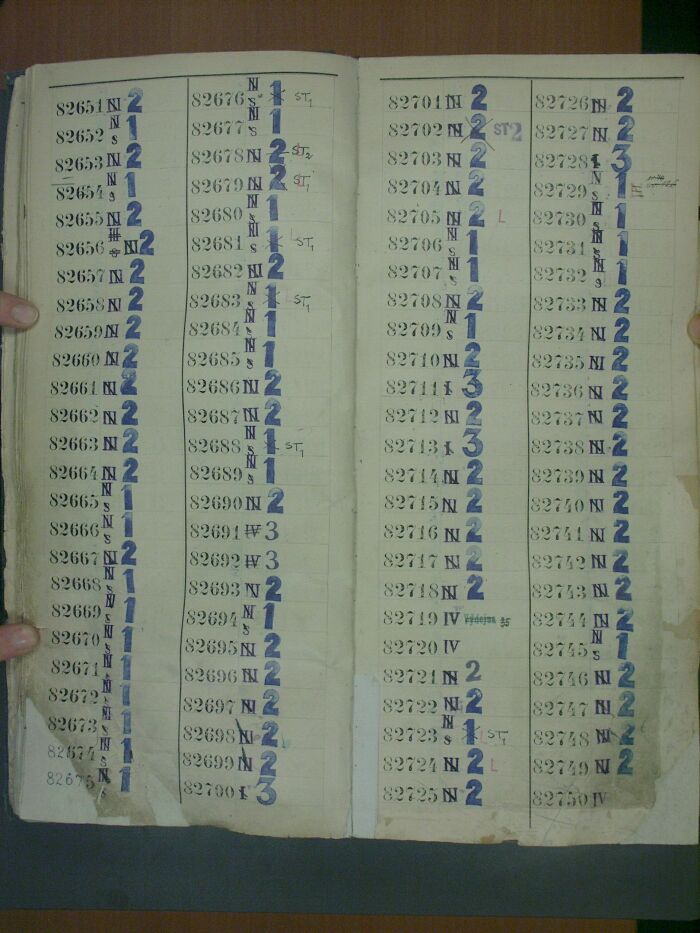 82651 N 2
82652 N s 1
82653 N 2
82654 N s 1
82655 N 2
82656 N 2
82657 N 2
82658 N 2
82659 N 2
82660 N 2
82661 N 2
82662 N 2
82663 N 2
82664 N 2
82665 N s 1
82666 N s 1
82667 N 2
82668 N s 1
82669 N s 1
82670 N s 1
82671 N s 1
82672 N s 1
82673 N s 1
82674 N s 1
82675 N s 1
82676 N s 1 ST1
82677 N s 1
82678 N 2 ST2
82679 N 2 ST1
82680 N s 1
82681 N s 1 ST1
82682 N 2
82683 N s 1 ST1
82684 N s 1
82685 N s 1
82686 N 2
82687 N 2
82688 N s 1 ST1
82689 N s 1
82690 N 2
82691 IV 3
82692 IV 3
82693 N 2
82694 N s 1
82695 N 2
82696 N 2
82697 N 2
82698 N 2
82699 N 2
82700 I 3
82701 N 2
82702 N 2 ST2
82703 N 2
82704 N 2
82705 N 2 L
82706 N s 1
82707 N s 1
82708 N 2
82709 N s 1
82710 N 2
82711 I 3
82712 N 2
82713 I 3
82714 N 2
82715 N 2
82716 N 2
82717 N 2
82718 N 2
82719 IV Výdejna 35
82720 IV
82721 N 2
82722 N 2
82723 N s 1 ST1
82724 N 2 L
82725 N 2
82726 N 2
82727 N 2
82728 I 3
82729 N s 1
82730 N s 1
82731 N s 1
82732 N s 1
82733 N 2
82734 N 2
82735 N 2
82736 N 2
82737 N 2
82738 N 2
82739 N 2
82740 N 2
82741 N 2
82742 N 2
82743 N 2
82744 N 2
82745 N s 1
82746 N 2
82747 N 2
82748 N 2
82749 N 2
82750 IV